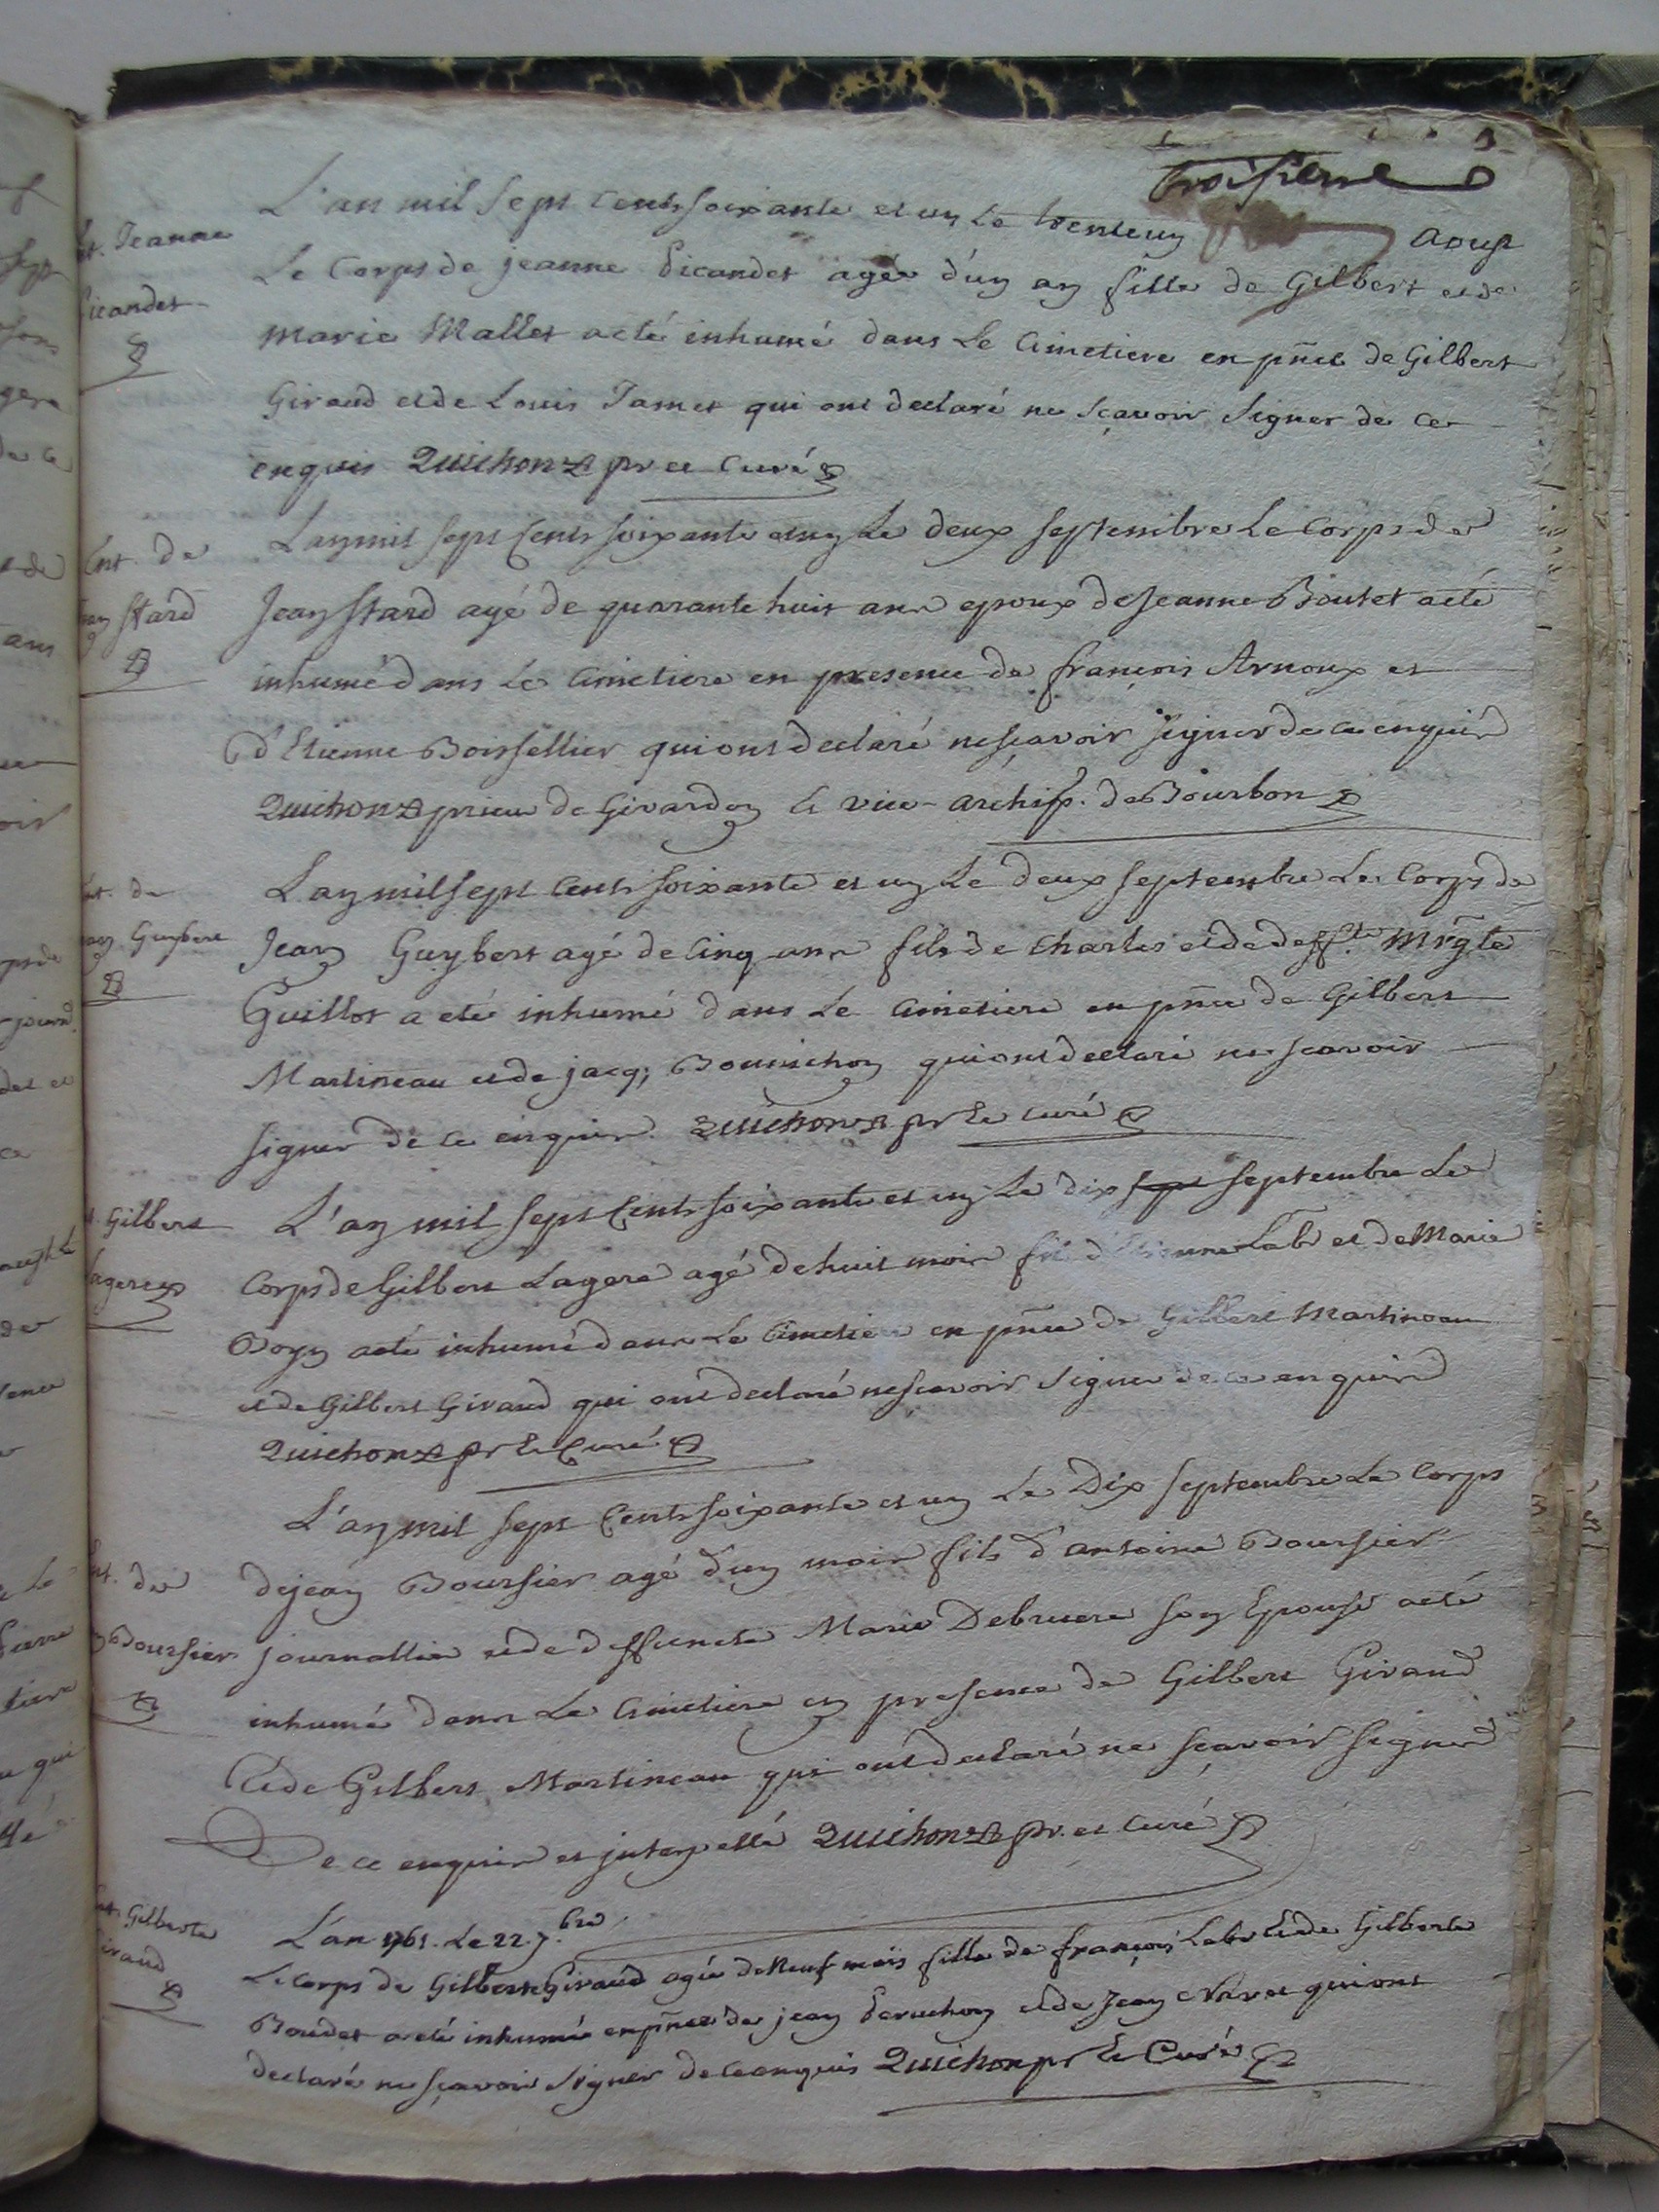 troisieme
L'an mil sept cents soixante et un le trente un aoust
Ent. Jeanne
Picandet
Le Corps de jeanne Picandet agée d'un an fille de Gilbert et de
marie Mallet a eté inhumé dans Le Cimetiere en pñce de Gilbert
Giraud et de Louis Jamet qui ont declaré ne sçavoir signer de ce
enquis Quichon pr et Curé
Ent. de
jean Stard
L'an mil sept Cents soixante et un Le deux septembre Le Corps de
Jean Stard agé de quarante huit ans epoux de Jeanne Boutet a eté
inhumé dans Le Cimetiere en presence de françois Arnoux et
d'Etienne Boissellier qui ont declaré ne sçavoir signer de ce enquis
Quichon prieur de Givardon et vice-archip. de Bourbon
Ent. de
jean Guybert
L'an mil sept Cents soixante et un Le deux septembre Le Corps de
Jean Guybert agé de Cinq ans fils de Charles et de deffte. Mrgte
Guillot a eté inhumé dans Le Cimetiere en pñce de Gilbert
Martineau et de jacq; Bounichon qui ont declaré ne scavoir
signer de ce enquis. Quichon pr et curé
Ent. Gilbert
Lagere
L'an mil sept Cents soixante et un Le dix sept septembre Le
Corps de Gilbert Lagere agé de huit mois fils d'Etienne Lab et de Marie
a eté inhumé dans Le Cimetiere en pñce de Gilbert Martineau
et de Gilbert Giraud qui ont declaré ne scavoir signer de ce enquis
Quichon pr et Curé
Ent. de
jean Boursier
L'an mil sept Cents soixante et un Le Dix septembre Le Corps
de jean Boursier agé d'un mois fils d'antoine Boursier
journallier et de deffuncte Marie Debruere son Epouse a eté
inhumé dans Le Cimetiere en presence de Gilbert Giraud
et de Gilbert Martineau qui ont declaré ne sçavoir signer
De ce enquis et interpellé Quichon pr. et Curé
Ent. Gilberte
Giraud
L'an 1761. Le 22 7.bre
Le Corps de Gilberte Giraud agée de Neuf mois fille de françois Labr et de Gilberte
Boudet a eté inhumée en pñce de jean Peruchon et de Jean qui ont
declaré ne sçavoir signer de ce enquis Quichon pr et Curé